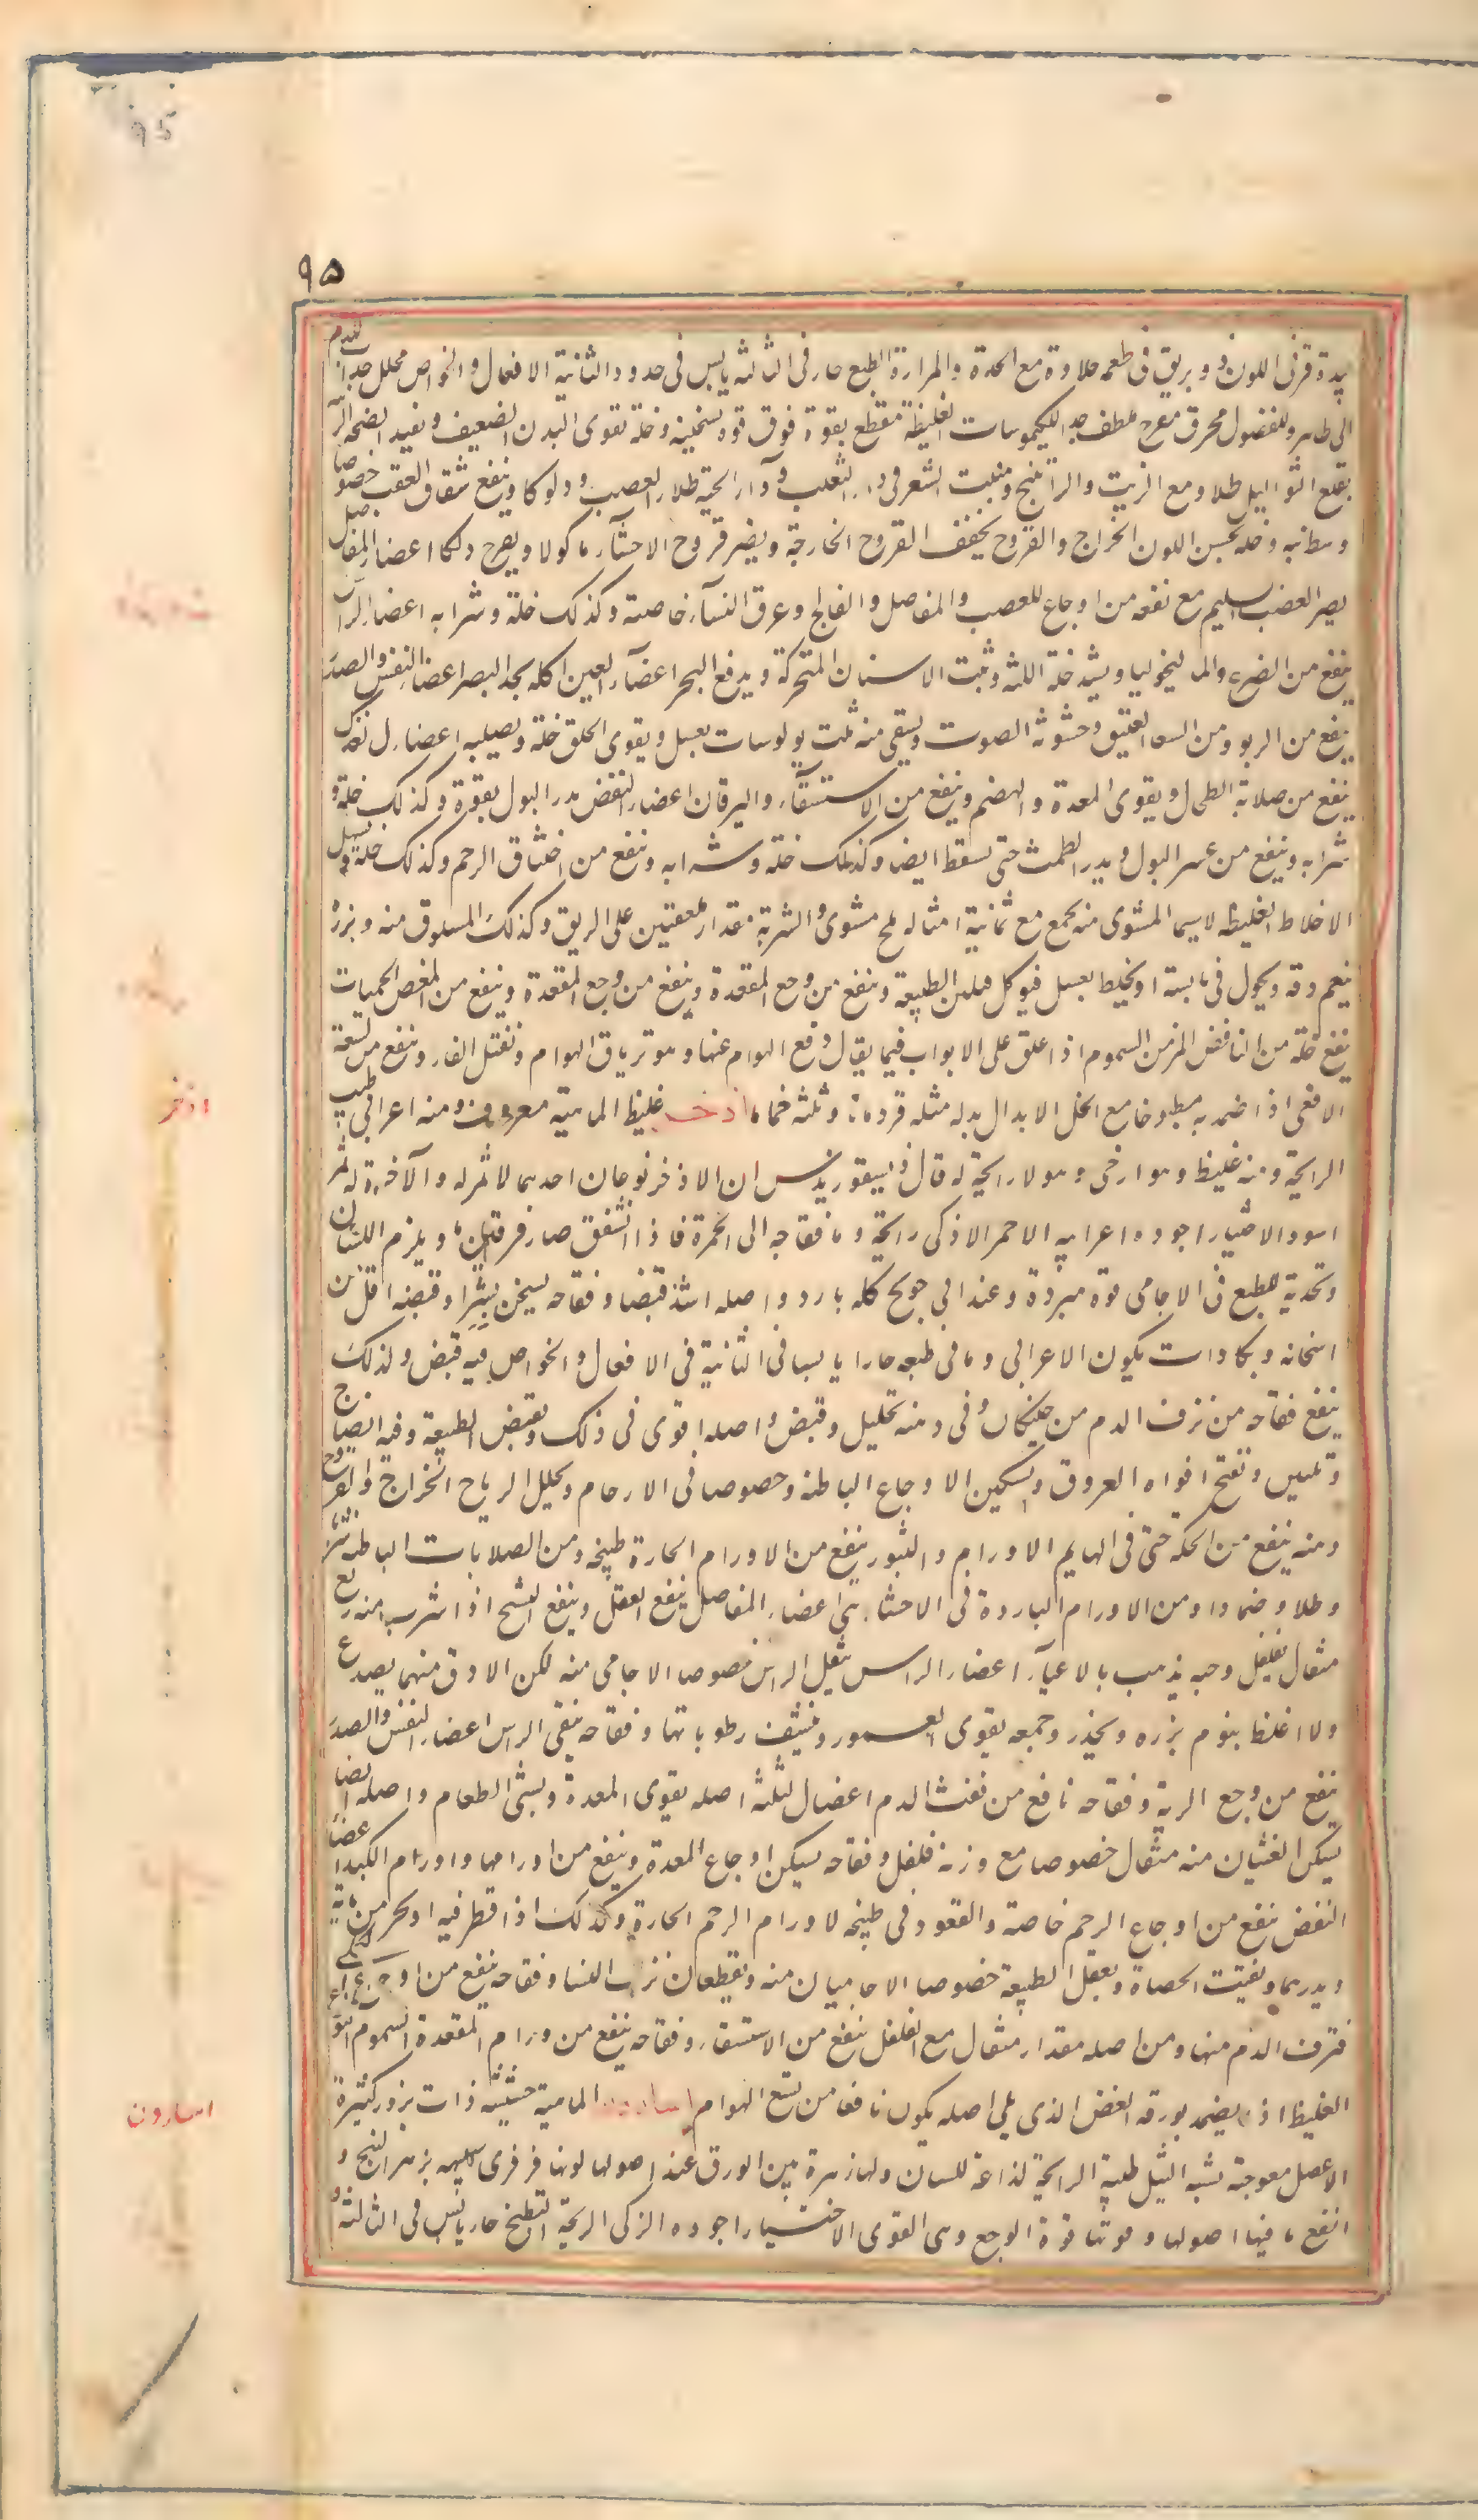 ٩٥
٩٥
فرفى اللون و بريق فى طعمه حلاوة مع الحدة والمرارة الطبع حار فى الثالثة يابس فى حدود الثانية الافعال والخواص محلل جذاب للدم
الى ظاهر وللفضول محرق مقرح ملطف جدا للكيموسات الغليظة مقطع بقوة فوق قوة تسخينه وخله تقوى البدن الضعيف ويفيد الصحة الزينة
يقلع الثواليل طلاء مع الزيت والراتينج وينبت الشعر فى داء الثعلب وداء الحية طلاء لعصب ودلوكا وينفع شقاق العقب خصوصا
وسطانيه وخله يحسن اللون الخراج والقروح يجفف القروح الخارجة ويضر قروح الاحشاء ماكولا ويقرح دلكا اعضاء المفاصل
يضر العصب السليم مع نفعه من اوجاع العصب والمفاصل والفالج وعرق النساء خاصة وكذلك خله وشرابه اعضاء الراس
ينفع من الصرع والماليخوليا ويشد خله اللثة ويثبت الاسنان المتحركة ويدفع البخر اعضاء العين اكله يحد البصر اعضاء النفس والصدر
ينفع من الربو ومن السعال العتيق وخشونة الصوت ويسقى منه ثلث يولوسات بعسل ويقوى الحلق خله ويصلبه اعضاء الغذاء
ينفع من صلابة الطحال ويقوى المعدة والهضم وينفع من الاستسقاء واليرقان اعضاء النفض يدر البول بقوة وكذلك خله و
شرابه وينفع من عسر البول ويدر الطمث حتى يسقط ايضا وكذلك خله وشرابه وينفع من اختناق الرحم وكذلك خله ويسهل
الاخلاط الغليظه لاسيما المشوى منه يجمع مع ثمانية امثاله ملح مشوى والشربة مقدار ملعقتين على الريق وكذلك المسلوق منه وبزره
ينعم دقه ويجول فى يابسة او يخلط بعسل فيوكل فيلين الطبيعة وينفع من وجع المقعدة وينفع من وجع المقعدة وينفع من المغص الحميات
ينفع خله من النافض المزمن السموم اذا علق على الابواب فيما يقال دفع الهوام عنها وهو ترياق الهوام ويقتل الفار وينفع من لسعة
الافعى اذا ضمد به مطبوخا مع الخل الابدال بدله مثله قردمانا وثلثه حماما اذخر غليظ الماهية معروف ومنه اعرابى طيب
الرايحة ومنه غليظ وهو ارخى وهو لا رايحة له قال ديسقوريدس ان الاذخر نوعان احدهما لا ثمر له والآخر له ثمر
اسود الاختيار اجوده اعرابيه الاحمر الاذكى رايحة واما فقاحه الى الحمرة فاذا تشقق صار فرفيرى ويلزم اللسان
وتحذية الطبع فى الاجامى قوة مبردة وعند ابى جريج كله بارد واصله اشد قبضا وفقاحه يسخن يسيرا وقبضه اقل من
اسخانه ويكاد ان يكون الاعرابى وما فى طبعه حارا يابسا فى الثانية فى الافعال والخواص فيه قبض ولذلك
ينفع فقاحه من نزف الدم من حيث كان وفى دهنه تحليل وقبض واصله اقوى فى ذلك ويقبض الطبيعة وفيه انضاج
وتليين وتفتح افواه العروق ويسكن الاوجاع الباطنة وخصوصا فى الارحام ويحلل الرياح الخراج والقروح
دهنه ينفع من الحكة حتى فى البهايم الاورام والبثور ينفع من الاورام الحارة طبيخه ومن الصلابات الباطنة شربا
وطلاء وضمادا ومن الاورام الباردة فى الاحشاء اعضاء المفاصل ينفع العضل وينفع التشنج اذا شرب منه ربع
مثقال بفلفل ودهنه يذهب بالاعياء اعضاء الراس يثقل الراس خصوصا الاجامى منه لكن الادق منهما يصدع
والاغلظ ينوم بزره ويخدر وجميعه يقوى العمور وينشف رطوباتها وفقاحه ينقى الراس اعضاء النفس والصدر
ينفع من وجع الرية وفقاحه نافع من نفث الدم اعضاء الغذاء اصله يقوى المعدة ويشهى الطعام واصله ايضا
يسكن الغثيان منه مثقال خصوصا مع وزنه فلفل وفقاحه يسكن اوجاع المعدة وينفع من اورامها واورام الكبد اعضاء
النفض ينفع من اوجاع الرحم خاصة والقعود فى طبيخه لاورام الرحم الحارة وكذلك اذا قطر فيه
ويدرهما ويفتت الحصاة ويعقل الطبيعة خصوصا الاجاميان منه ويقطعان نزف النساء وفقاحه ينفع من اوجاع
فنزف الدم منها ومن اصله مقدار مثقال مع الفلفل ينفع من الاستسقاء وفقاحه ينفع من ورام المقعدة السموم النوع
الغليظ اذا يضمد بورقه الغض الذى يلى اصله يكون نافعا من لسع الهوام اسارون الماهية حشيشة ذات بزور كثيرة
الاصل معوجة تشبه الثيل طيبة الرايحة لذاعة للسان ولها زهرة بين الورق عند اصولها لونها فرفرى شبيهه بزهر البنج و
انفع ما فيها اصولها وقوتها قوة الوج وهى اقوى الاختيار اجوده الزكى الرايحة الطبع حار يابس فى الثالثة و
اذخر
اسارون